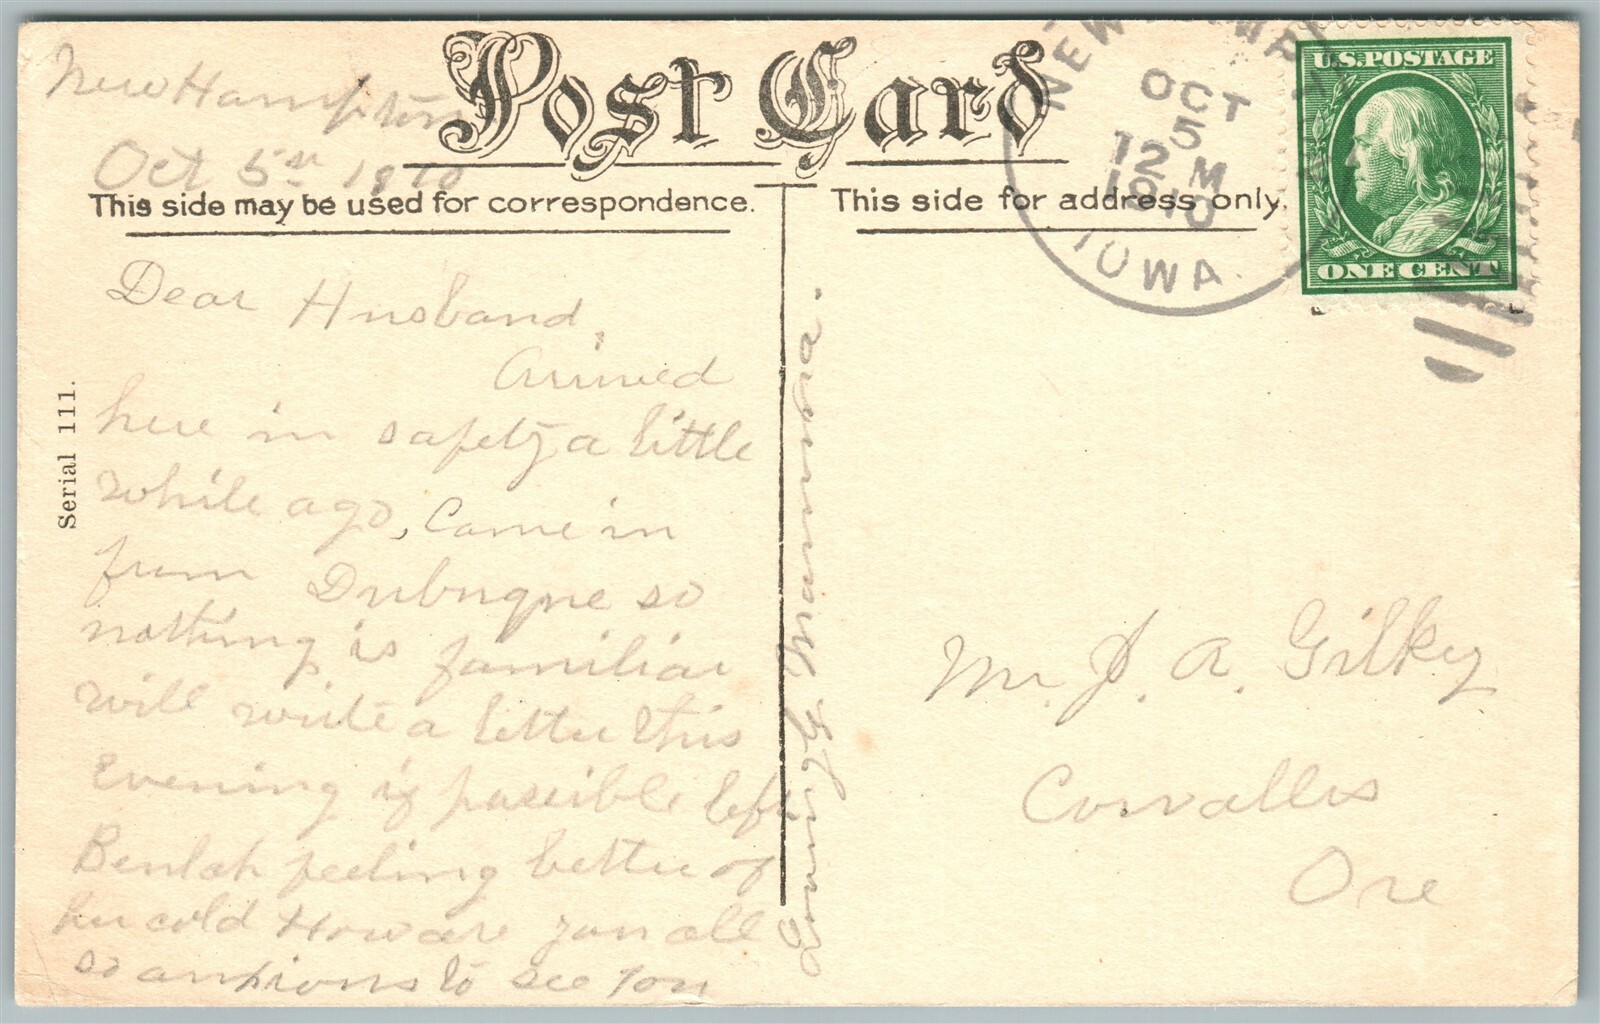 New Hampton
Oct 5th 1910
Post Card
This side may be used for correspondence.
This side for address only.
NEW HAMPTON
OCT
5
12 M
1910
IOWA
U.S. POSTAGE
ONE CENT
Serial 111.
Dear Husband,
Arrived
here in safety a little
while ago, Came in
from Dubuque so
nothing is familiar
will write a letter this
Evening if possible left
Beulah feeling better of
her cold How are you all
so anxious to see you
Mr. J. A. Gilkey
Corvallis
Ore